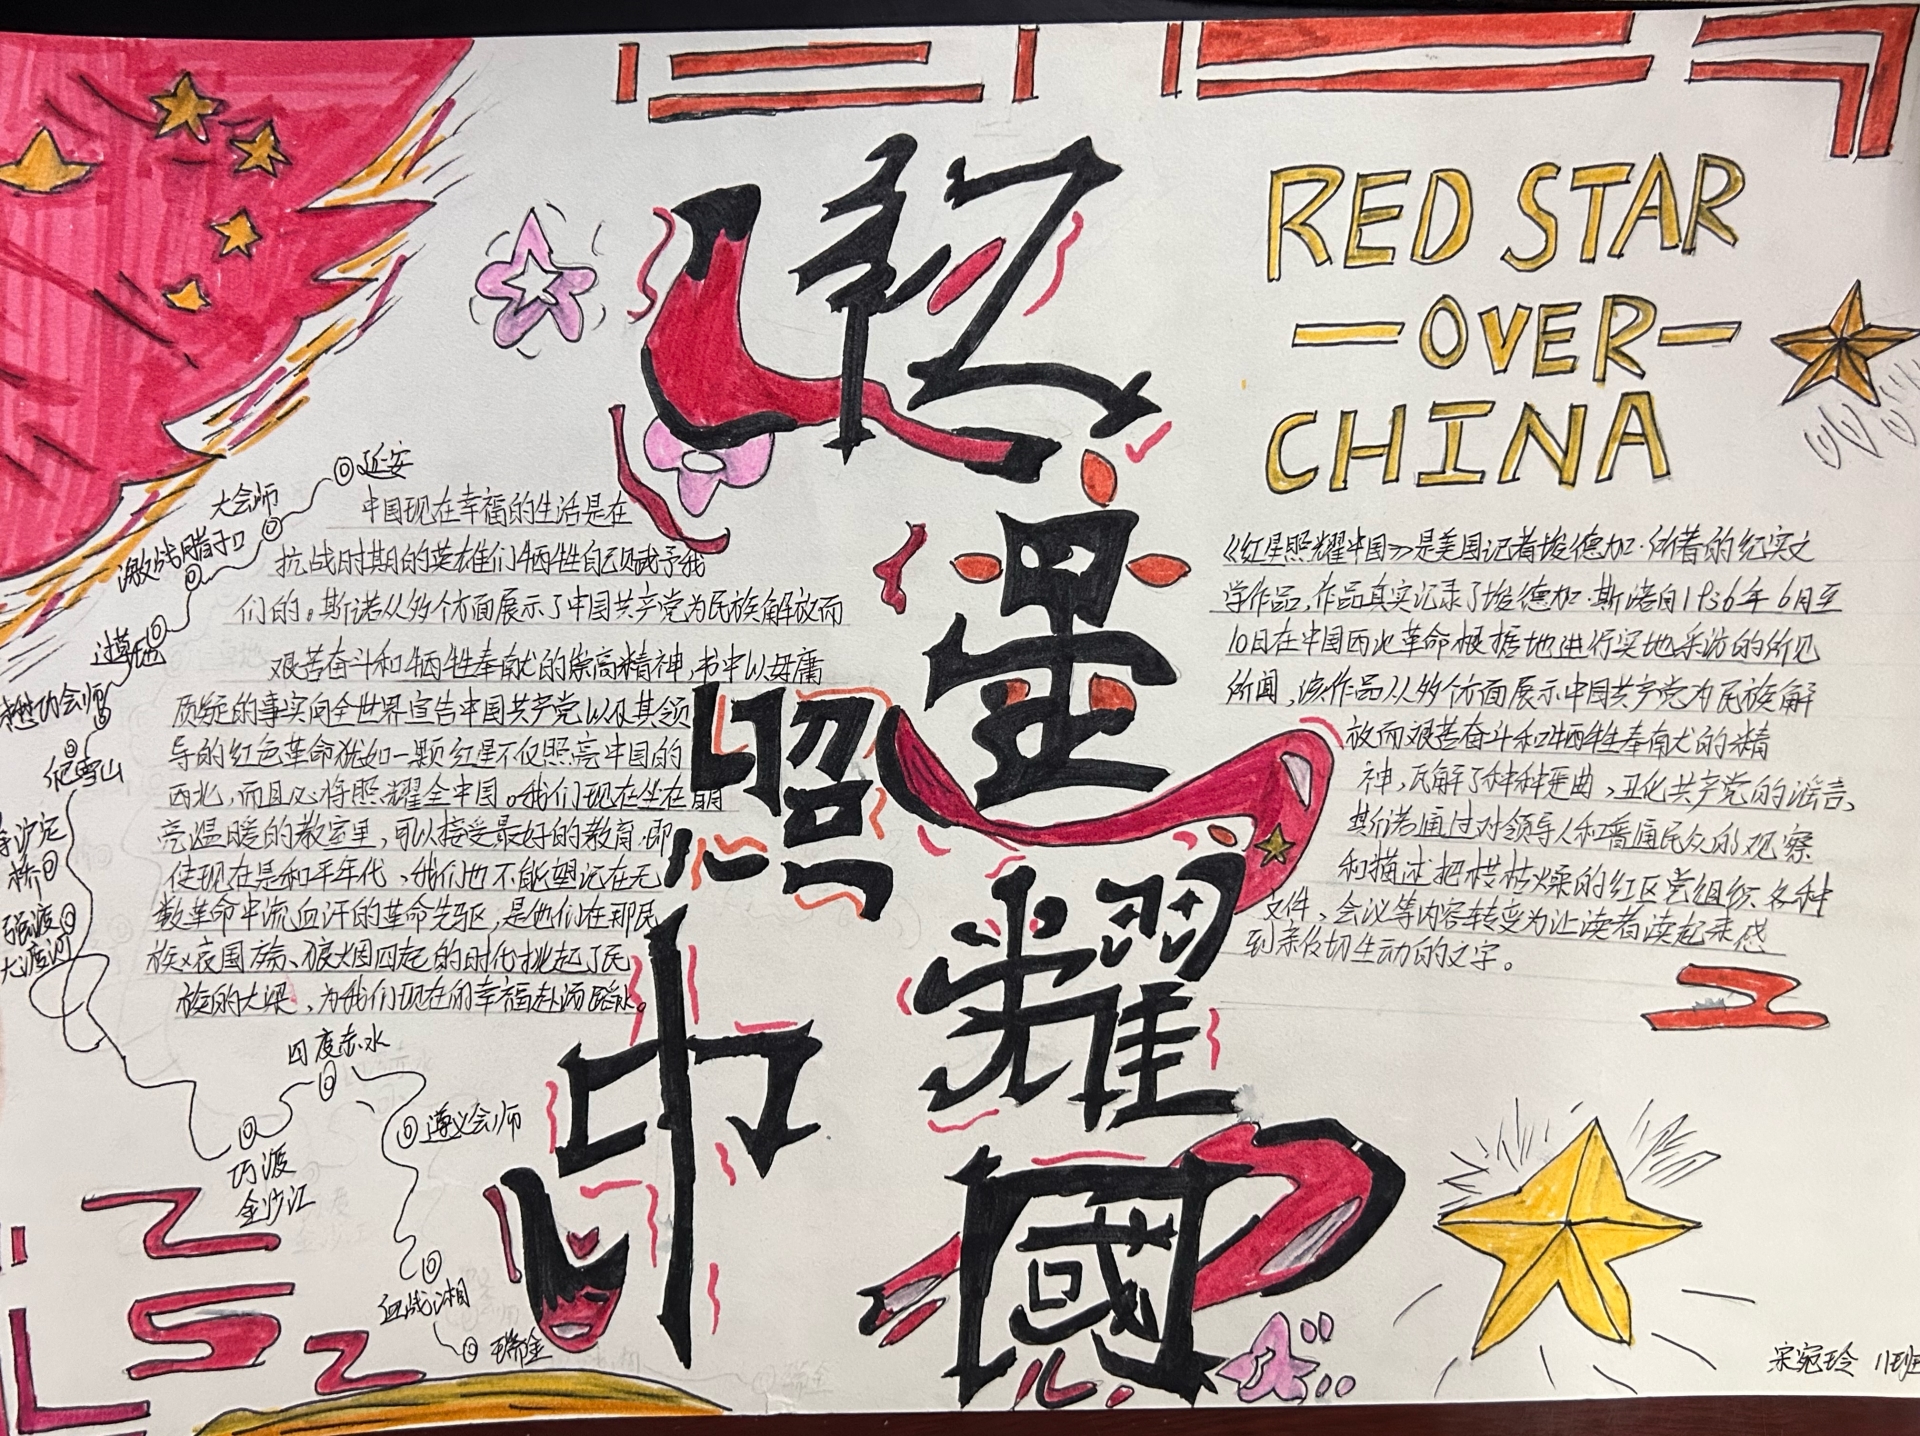 红星照耀中國
RED STAR
OVER
CHINA
《红星照耀中国》是美国记者埃德加·斯诺著的纪实文
学作品,作品真实记录了埃德加·斯诺自1936年6月至
10月在中国西北革命根据地进行实地采访的所见
所闻,该作品从多个方面展示中国共产党为民族解
放而艰苦奋斗和牺牲奉献的精
神,瓦解了种种歪曲、丑化共产党的谣言,
斯诺通过对领导人和普通民众的观察
和描述把枝枯燥的红区党组织各种
文件、会议等内容转变为让读者读起来感
到亲份切生动的文字。
中国现在幸福的生活是在
抗战时期的英雄们牺牲自己赋予我
们的。斯诺从多个方面展示了中国共产党为民族解放而
艰苦奋斗和牺牲奉献的崇高精神,书中以毋庸
质疑的事实向全世界宣告中国共产党以及其领
导的红色革命犹如一颗红星不仅照亮中国的
西北,而且必将照耀全中国。我们现在坐在明
亮温暖的教室里,可以接受最好的教育,即
使现在是和平年代,我们也不能忘记在无
数革命中流血汗的革命先驱,是他们在那民
国、狼烟四起的时代挑起了民
族的大梁,为我们现在的幸福赴汤蹈火。
延安
大会师
激战腊子口
过草地
懋功会师
爬雪山
泸定
桥
强渡
大渡河
巧渡
金沙江
四度赤水
遵义会师
血战湘
瑞金
宋宛玲 11班